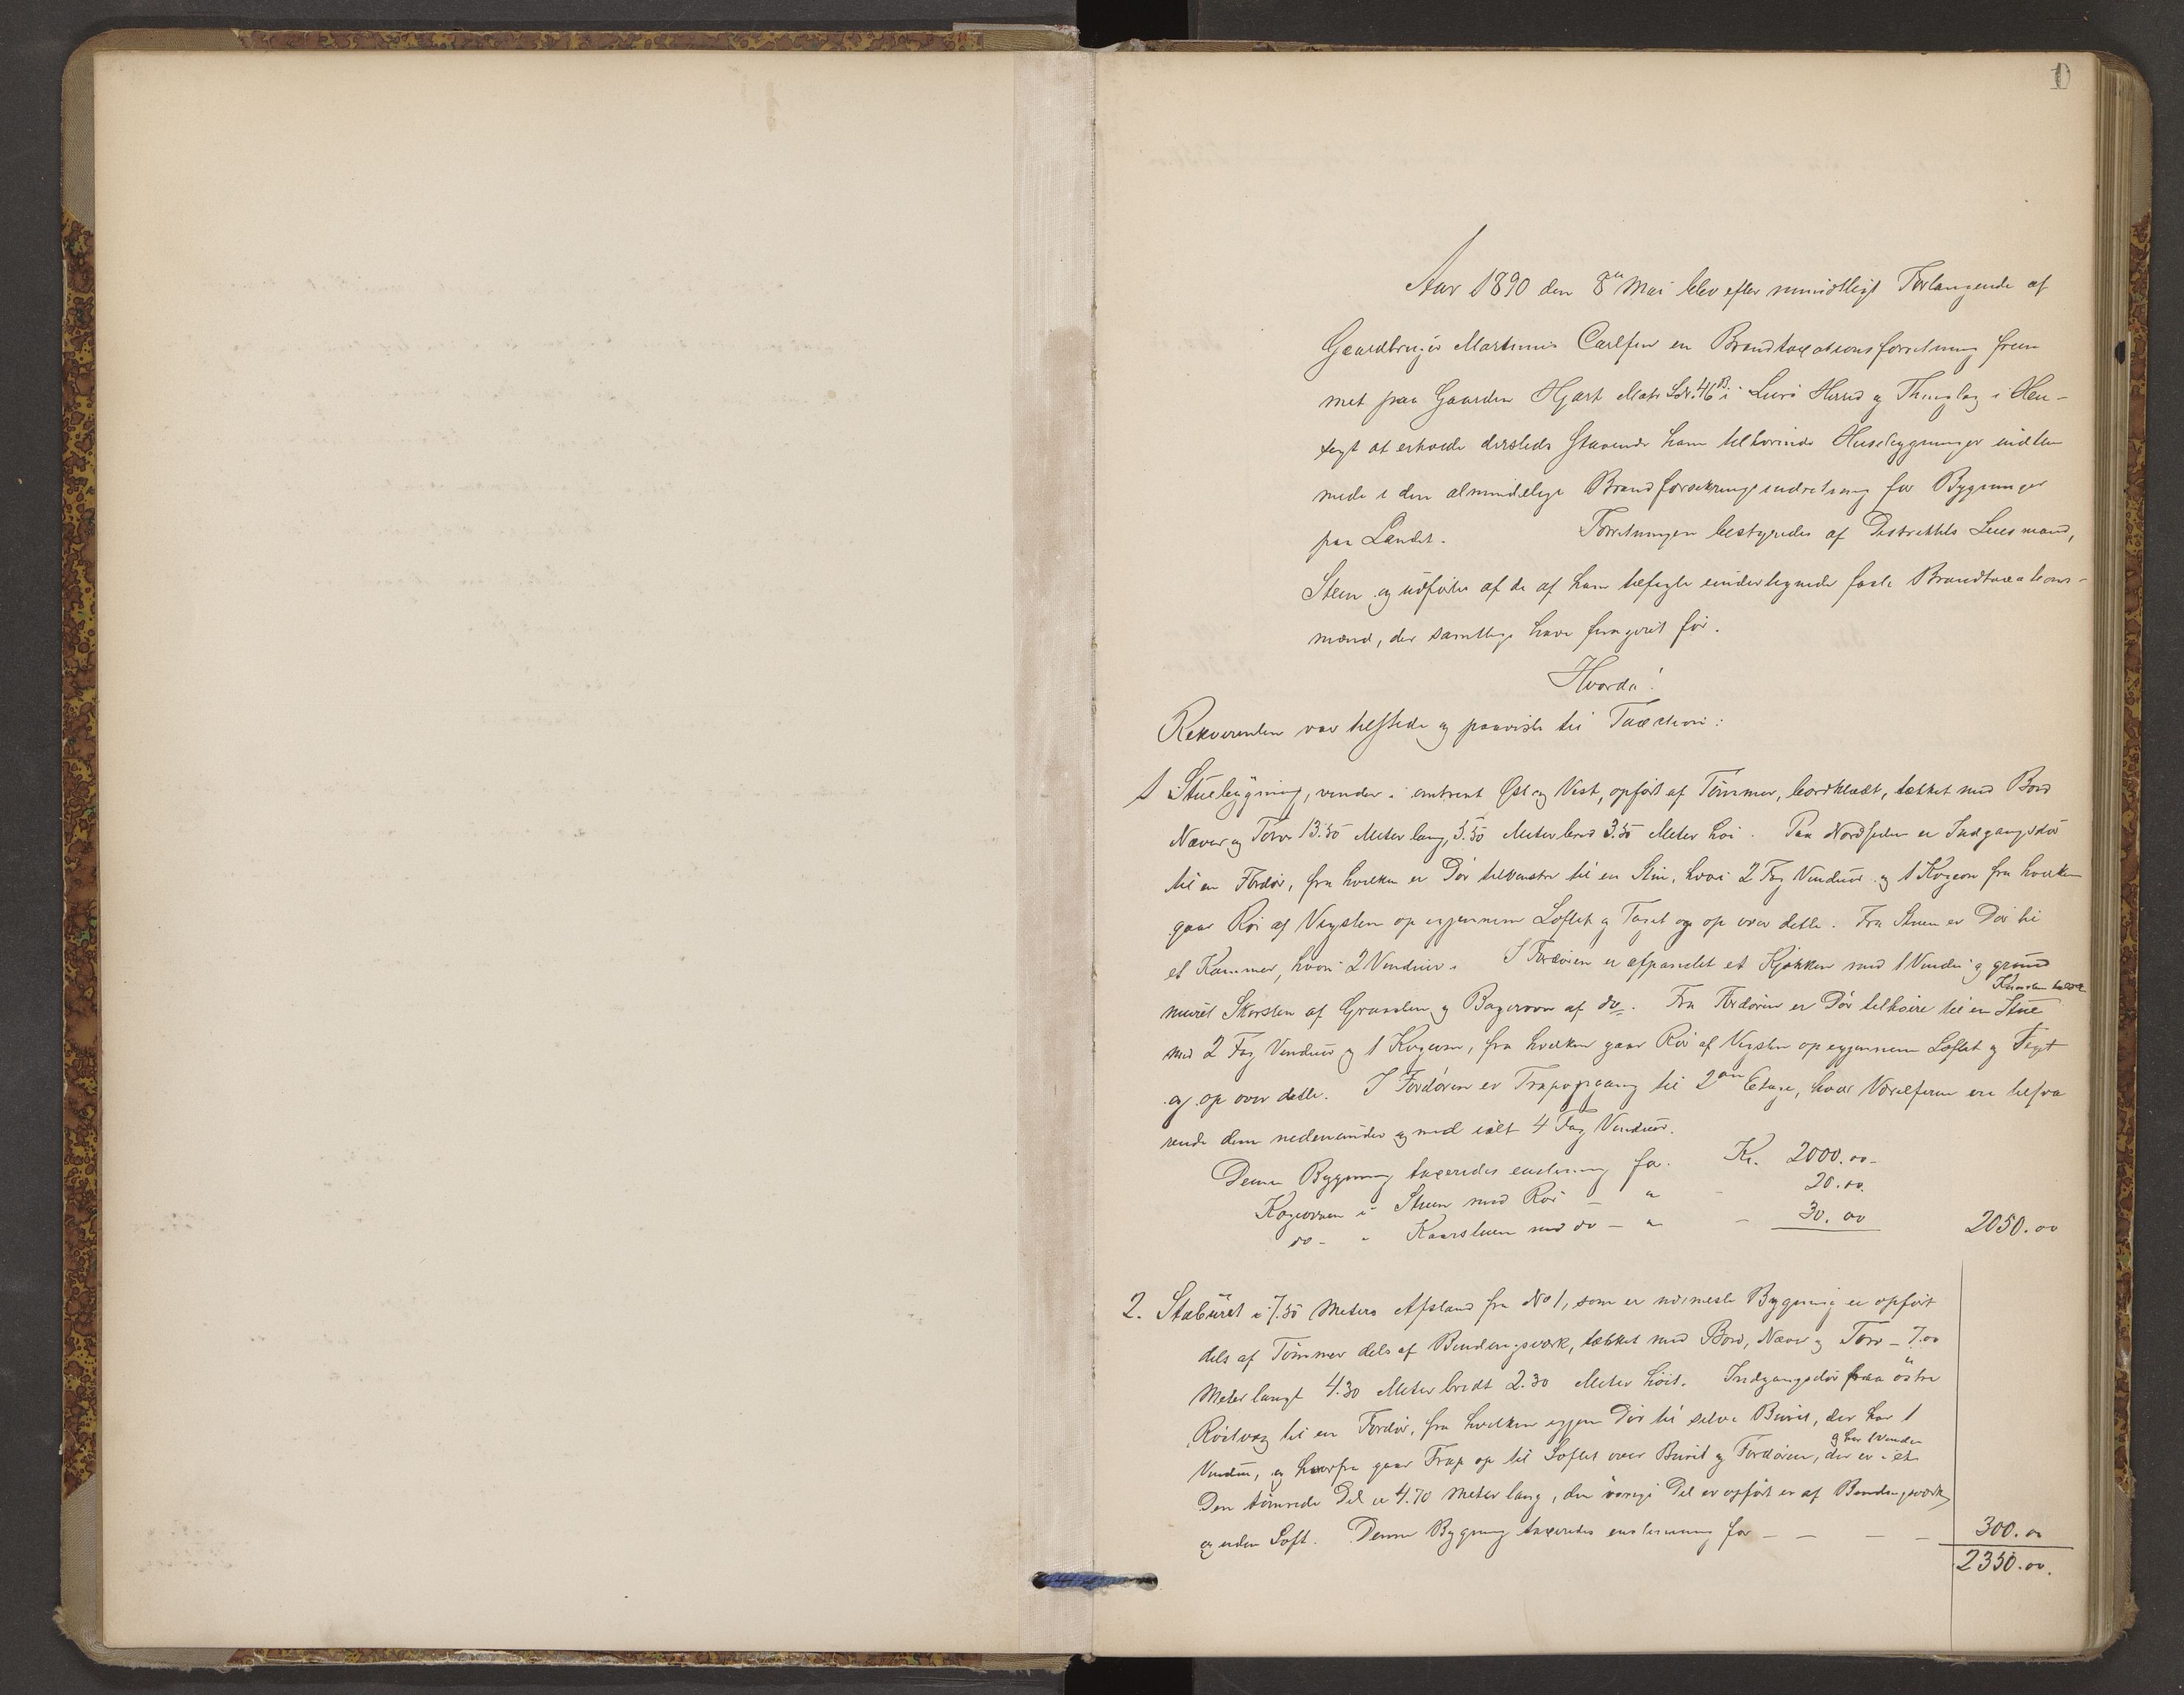 1
Aar 1890 den 8de Mai blev efter mundtligt Forlangende af
Gaardbruger Martinus Carlsen en Brandtaxationsforretning frem
met paa Gaarden Hjart Matr Lbr. 46 B. i Lurö Herred og Thinglag i Hen-
sigt at erholde dersteds staaende ham tilhörende Husebygninger indlem
mede i den almindelige Brandforsikringsindretning for Bygninger
paa Landet. Forretningen bestyredes af Distriktets Lensmand,
Steen og udförtes af de af ham undertegnede faste Brandtaxations-
mænd, der samtlige have fungeret för.
Hvorda!
Rekvirenten var tilstede og paaviste til Taxation:
1 Stuebygning, vender i omtrent Öst og Vest, opfört af Tömmer, bordklædt, tækket med Bord
Næver og Torv 13.50 Meter lang, 5.50 Meter bred 3.50 Meter höi. Paa Nordsiden er Indgangsdör
til en Fordör, fra hvilken er Dör tilvenstre til en Stue, hvori 2 Fag Vinduer og 1 Kogeovn fra hvilken
gaar Rör af Vegsten op igjennem Loftet og Taget og op over dette. Fra Stuen er Dör til
et Kammer, hvori 2 Vinduer. I Fordören er afpanelet et Kjökken med 1 Vindu og grund
muret Skorsten af Graasten og Bagerovn af do. Fra Fordören er Dör tilhöire til en Stue
med 2 Fag Vinduer og 1 Kogeovn, fra hvilken gaar Rör af Vegsten op igjennem Loftet og Taget
og op over dette. I Fordören er Trapopgang til 2den Etage, hvor Værelserne ere tilsva
rende dem nedenunder og med ialt 4 Fag Vinduer.
Denne Bygning taxeredes enstemmig for Kr. 2000.00
Kogeovnen i Stuen med Rör - " - 20.00
do - " Kaarstuen med do - " - 30.00 2050.00
2. Stabüret i 7.50 Meters Afstand fra No 1, som er nærmeste Bygning er opfört
dels af Tömmer dels af Bindingsverk, tækket med Bord, Næver og Torv - 7.00
Meter langt 4.30 Meter bredt 2.30 Meter höit. Indgangsdör paa östre
Röstvæg til en Fordör, fra hvilken igjen Dör til selve Buret, der har 1
og har 1 Vindu
Vindu, og hvorfra gaar Trap op til Loftet over Buret og Fordören, der er i et
Den tömrede Del er 4.70 Meter lang, den övrige Del er opfört er af Bindingsverk
og uden Loft. Denne Bygning taxeredes enstemmig for - - - - 300.00
2350.00.